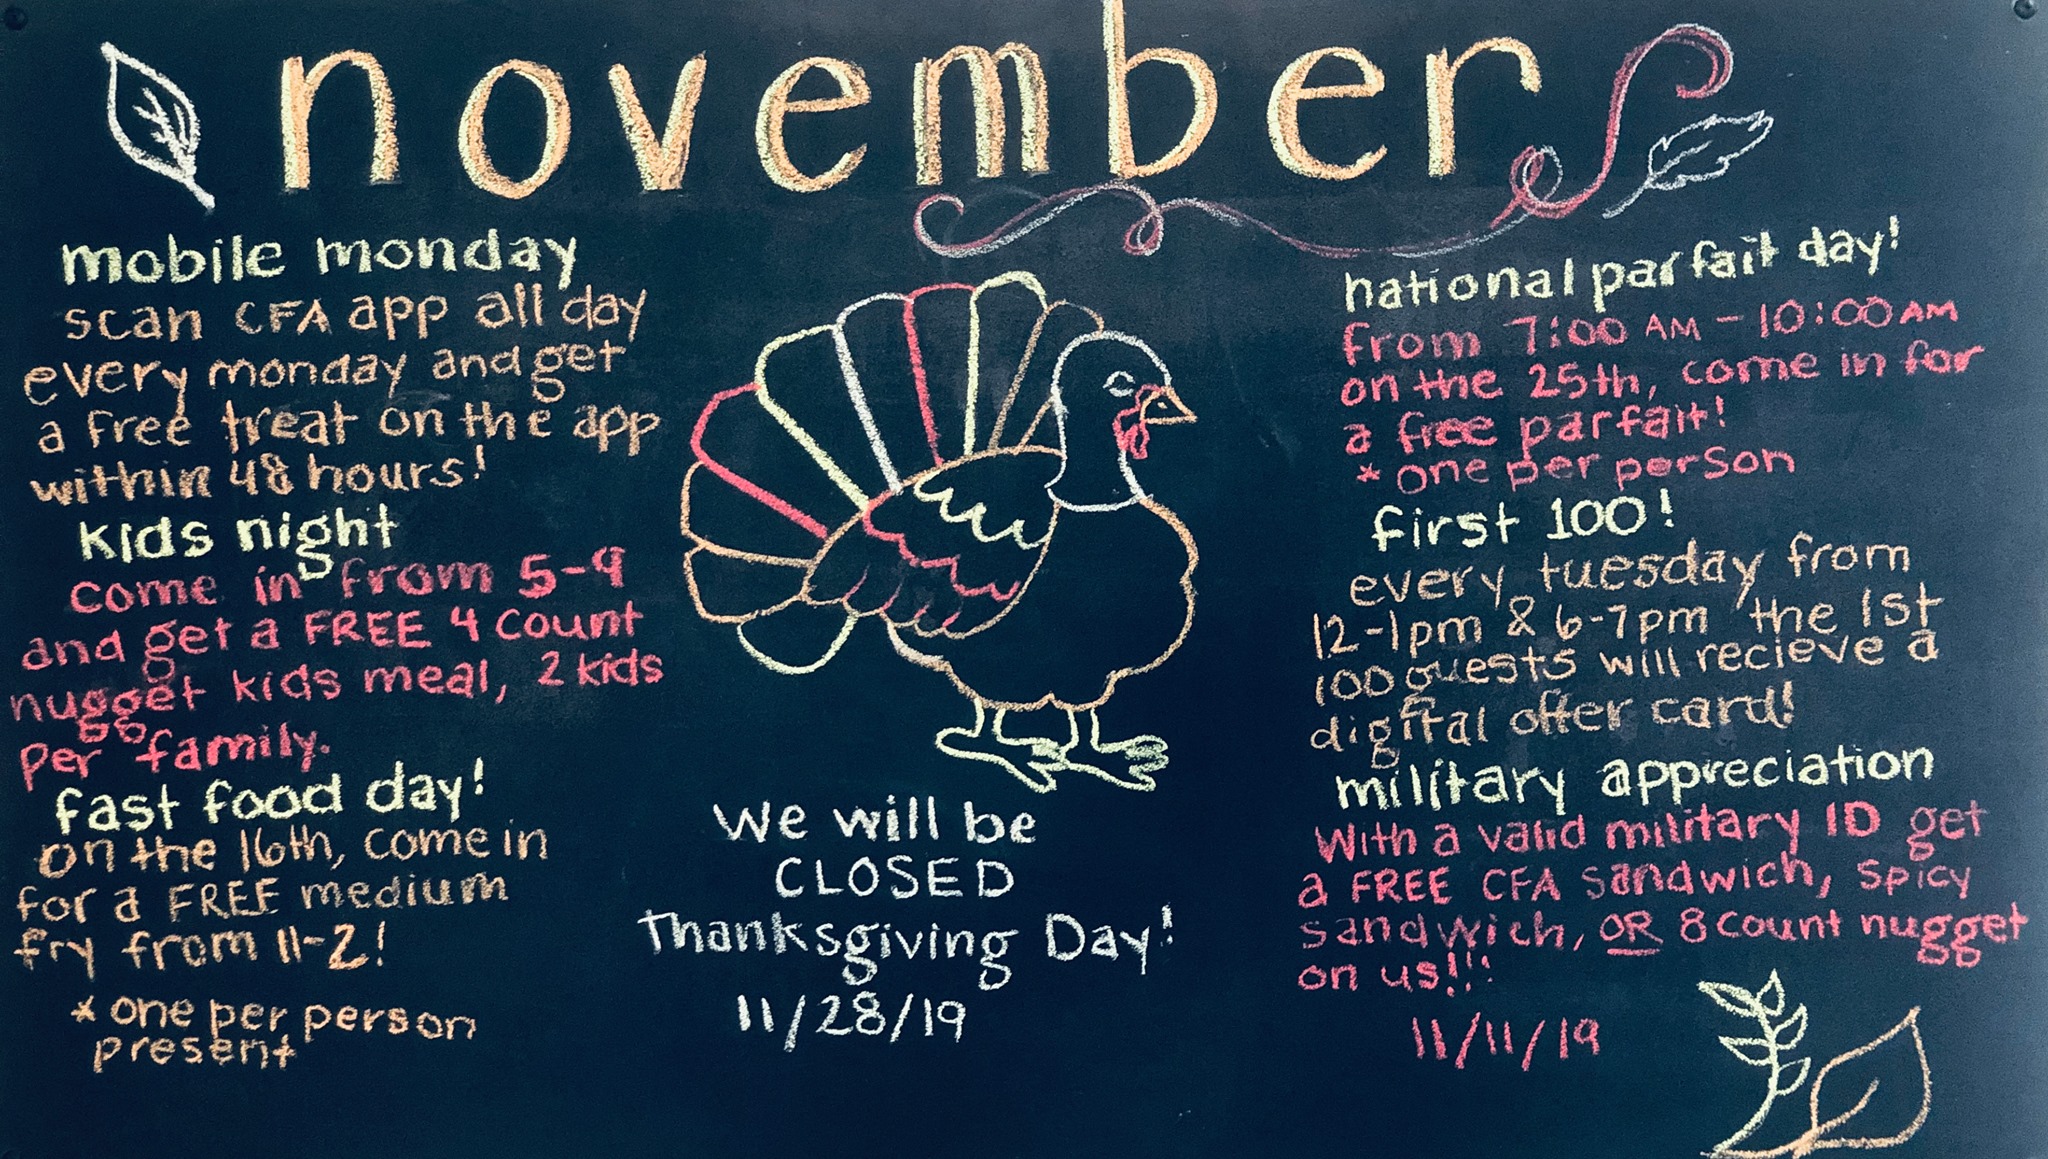 november
mobile monday
scan CFA app all day
every monday and get
a free treat on the app
within 48 hours!
kids night
come in from 5-9
and get a FREE 4 count
nugget kids meal, 2 kids
per family.
fast food day!
on the 16th, come in
for a FREE medium
fry from 11-2!
* one per person
present
We will be
CLOSED
Thanksgiving Day!
11/28/19
national parfait day!
From 7:00 AM - 10:00 AM
on the 25th, come in for
a free parfait!
* one per person
first 100!
every tuesday from
12-1pm & 6-7pm the 1st
100 guests will recieve a
digital offer card!
military appreciation
With a valid military ID get
a FREE CFA sandwich, spicy
sandwich, OR 8 count nugget
on us!!!
11/11/19